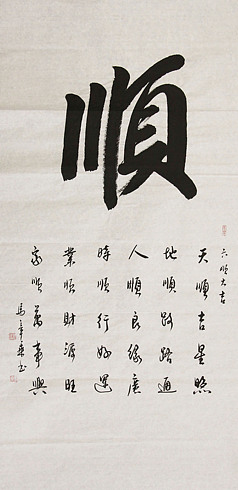 順
六順大吉
天順吉星照
地順路路通
人順良緣廣
時順行好運
業順財源旺
家順萬事興